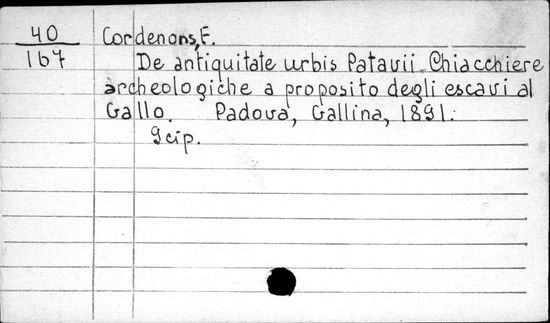 40 Cordenons, F.
167 De antiquitate urbis Patavii. Chiacchiere
archeologiche a proposito degli escavi al
Gallo. Padova, Gallina, 1891.